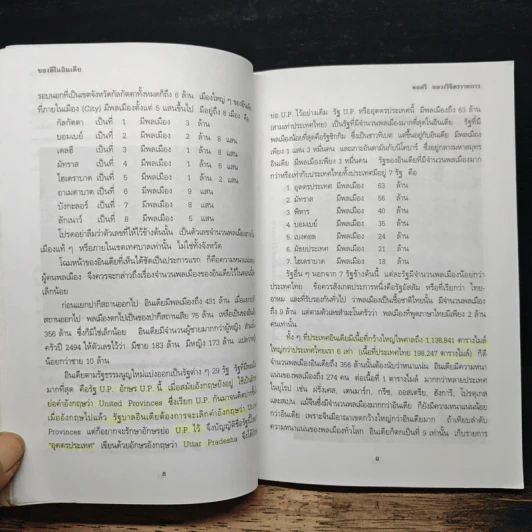 ของดีในอินเดีย
รอบนอกที่เป็นเขตจังหวัดกัลกัตตาทั้งหมดก็ถึง 6 ล้าน เมืองใหญ่ ๆ ของอินเดีย
ที่ภายในเมือง (City) มีพลเมืองตั้งแต่ 5 แสนขึ้นไป มีอยู่ถึง 8 เมือง คือ
กัลกัตตา เป็นที่ 1 มีพลเมือง 3 ล้าน
บอมเบย์ เป็นที่ 2 มีพลเมือง 2 ล้าน 8 แสน
เดลฮี เป็นที่ 3 มีพลเมือง 1 ล้าน 8 แสน
มัทราส เป็นที่ 4 มีพลเมือง 1 ล้าน 6 แสน
ไฮเดราบาด เป็นที่ 5 มีพลเมือง 1 ล้าน 2 แสน
อาเมดาบาด เป็นที่ 6 มีพลเมือง 9 แสน
บังกะลอร์ เป็นที่ 7 มีพลเมือง 8 แสน
ลักเนาว์ เป็นที่ 8 มีพลเมือง 5 แสน
โปรดอย่าลืมว่าตัวเลขที่ให้ไว้ข้างต้นนั้น เป็นตัวเลขจำนวนพลเมือง
เมืองแท้ ๆ หรือภายในเขตเทศบาลเท่านั้น ไม่ใช่ทั้งจังหวัด
โฉมหน้าของอินเดียที่เห็นได้ชัดเป็นประการแรก ก็คือความหนาแน่น
ผู้คนพลเมือง จึงควรจะกล่าวถึงเรื่องจำนวนพลเมืองของอินเดียไว้ในตอนนี้
เล็กน้อย
ก่อนแยกปากีสถานออกไป อินเดียมีพลเมืองถึง 431 ล้าน เมื่อแยก
สถานออกไป พลเมืองตกไปเป็นของปากีสถานเสีย 75 ล้าน เหลือเป็นของอินเดีย
356 ล้าน ซึ่งก็มิใช่เล็กน้อย อินเดียมีจำนวนผู้ชายมากกว่าผู้หญิง สำมะโน
ครัวปี 2494 ให้ตัวเลขไว้ว่า มีชาย 183 ล้าน มีหญิง 173 ล้าน
น้อยกว่าชาย 10 ล้าน
อินเดียตามรัฐธรรมนูญใหม่แบ่งออกเป็นรัฐต่าง ๆ 29 รัฐ รัฐที่มีพลเมือง
มากที่สุด คือรัฐ U.P. อักษร U.P. นี้ เมื่อสมัยอังกฤษยังอยู่ ใช้เป็น
ย่อคำอังกฤษว่า United Provinces ซึ่งเรียก U.P. กันมาจนติดปาก
เมื่ออังกฤษไปแล้ว รัฐบาลอินเดียต้องการจะเลิกคำอังกฤษว่า United
Provinces แต่ก็อยากจะรักษาอักษรย่อ U.P. ไว้ จึงบัญญัติชื่อรัฐ
"อุตตรประเทศ" เขียนด้วยอักษรอังกฤษว่า Uttar Pradesha จึงใช้
8
พลตรี หลวงวิจิตรวาทการ
ย่อ U.P. ไว้อย่างเดิม รัฐ U.P. หรืออุตตรประเทศนี้ มีพลเมืองถึง 63 ล้าน
(สามเท่าประเทศไทย) เป็นรัฐที่มีจำนวนพลเมืองมากที่สุดในอินเดีย รัฐที่มี
พลเมืองน้อยที่สุดคือรัฐซิกกิม ซึ่งเป็นชาวทิเบต แต่ขึ้นอยู่กับอินเดีย มีพลเมือง
เพียง 1 แสน 3 หมื่นคน และเกาะอันดามันกับนิโคบาร์ ซึ่งอยู่กลางมหาสมุทร
อินเดีย มีพลเมืองเพียง 3 หมื่นคน รัฐของอินเดียที่มีจำนวนพลเมืองมาก
กว่าหรือเท่ากับประเทศไทยทั้งประเทศมีอยู่ 7 รัฐ คือ
1. อุตตรประเทศ มีพลเมือง 63 ล้าน
2. มัทราส มีพลเมือง 56 ล้าน
3. พิหาร มีพลเมือง 40 ล้าน
4. บอมเบย์ มีพลเมือง 35 ล้าน
5. เบงคอล มีพลเมือง 24 ล้าน
6. มัธยประเทศ มีพลเมือง 21 ล้าน
7. ไฮเดราบาด มีพลเมือง 18 ล้าน
รัฐอื่น ๆ นอกจาก 7 รัฐข้างต้นนี้ แต่ละรัฐมีจำนวนพลเมืองน้อยกว่า
ประเทศไทย ข้อควรสังเกตประการหนึ่งคือรัฐอัสสัม หรือที่เรียกว่า ไทย-
อาหม และที่รับรองกันทั่วไป ว่าพลเมืองเป็นเชื้อชาติไทยนั้น มีจำนวนพลเมือง
ถึง 9 ล้าน แต่ตามตัวเลขสำรวจก็ว่า พลเมืองที่พูดภาษาไทยมีเพียง 2 ล้าน
คนเท่านั้น
ทั้ง ๆ ที่ประเทศอินเดียมีเนื้อที่กว้างใหญ่ไพศาลถึง 1,138,941 ตารางไมล์
ใหญ่กว่าประเทศไทยเรา 6 เท่า (เนื้อที่ประเทศไทย 198,247 ตารางไมล์) ก็ดี
จำนวนพลเมืองของอินเดียถึง 356 ล้านนั้นต้องนับว่าหนาแน่น อินเดียมีความหนา
แน่นของพลเมืองถึง 274 คน ต่อเนื้อที่ 1 ตารางไมล์ มากกว่าหลายประเทศ
ในยุโรป เช่น ฝรั่งเศส, เดนมาร์ก, กรีซ, ออสเตรีย, ฮังการี, โปรตุเกส
และสเปน แม้จีนซึ่งมีจำนวนพลเมืองมากกว่าอินเดีย ก็ยังมีความหนาแน่นน้อย
กว่าอินเดีย เพราะจีนมีอาณาเขตกว้างใหญ่กว่าอินเดียมาก ถ้าเทียบลำดับ
ความหนาแน่นของพลเมืองทั่วโลก อินเดียก็ตกเป็นที่ 9 เท่านั้น เก็บรายการ
9